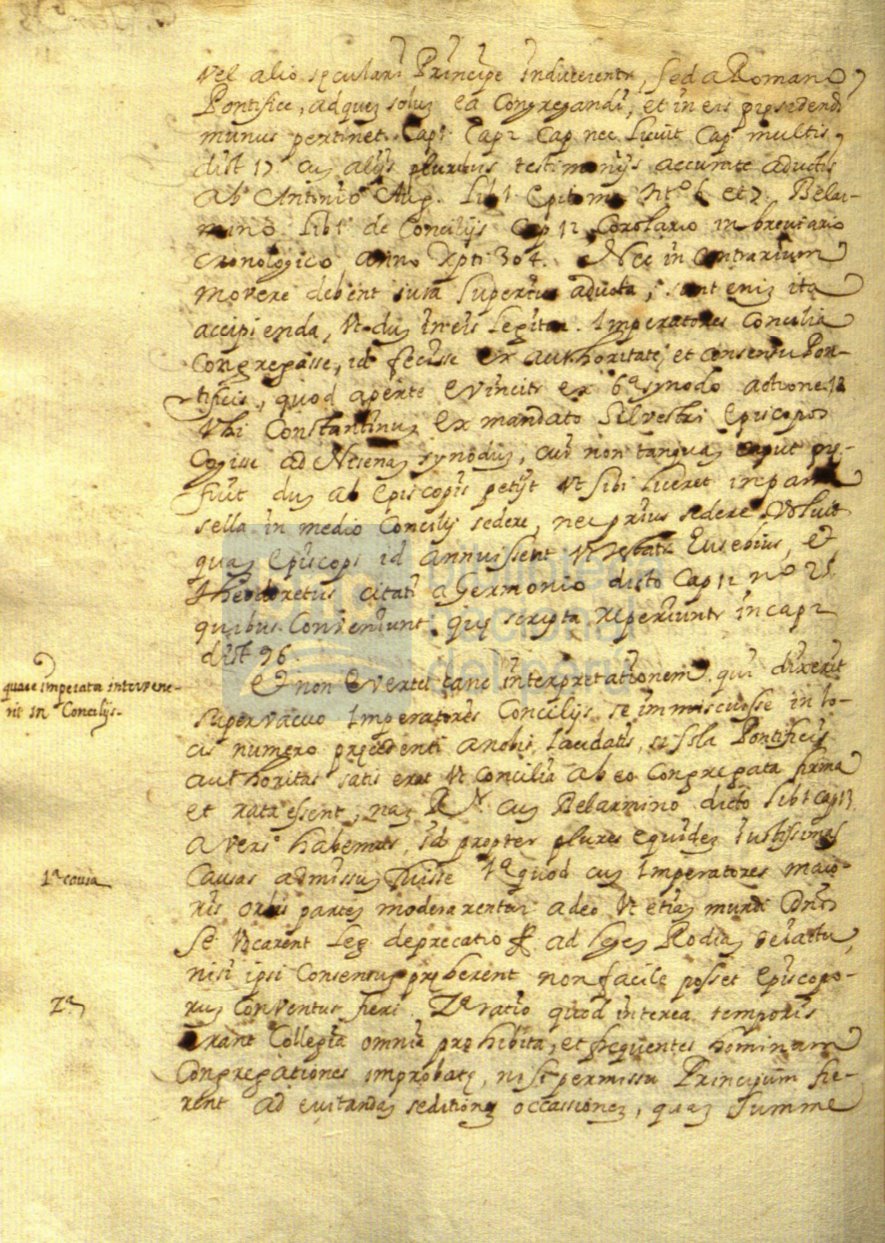 vel alio seculari Principe indicerentr, sed a Romano
Pontifice, ad quem solum ea Congregandi, et in eis presidendi
munus pertinet. Cap 1 Cap 2 Cap nec licuit Cap multis
dist 17. cum alijs pluribus testimonijs accurate aductis
ab Antonio Aug. lib 1 Epitome et 2. Belar-
mino lib 1 de Concilijs Cap 12 Corolario in breviario
cronologico anno Xpti 304. Nec in contrarium
movere debent iura superius aducta, sunt enim ita
accipienda, Vt dum in eis legitur Imperatores Concilia
Congregasse, id fecisse ex authoritate, et consensu Pon-
tificis, quod aperte evincitr ex 6ª synodo actione 18
Vbi Constantinus ex mandato Silvestri Episcopos
Cogisse ad Nisenam synodum, cui non tanquam caput pre-
fuit dum ab Episcopis petijt Vt sibi liceret in parva
sella in medio Concilij sedere, nec prius sedere Voluit
quam Episcopi id annuissent Eusebius, et
Theodoretus citati a Germonio dicto Cap 12 nº 25
quibus conveniunt. que scripta reperiuntr in cap 2
dist 96.
Et non evertet hanc interpretationem qui dixerit
quare imperatores intervene-
rit in Concilijs.
supervacuo Imperatores Concilijs se immiscuisse in lo-
cis numero precedenti a nobis laudatis, si sola Pontificis
authoritas satis erat Vt Concilia ab eo Congregata firma
et rata essent, nam Rr. cum Belarmino dicto lib 1 cap 13
a veri habemus, id propter plures equidem iustissimas
Causas admissum fuisse 1ª quod cum Imperatores maio-
1ª causa
ris orbis partem moderarentur adeo Vt etiam mundi Dnos
se Vocarent leg deprecatio ff ad legem Rodiam de iactu,
nisi ipsi Consensum preberent non facile posset Episcopo-
rum conventus fieri. 2ª ratio quod interea temporis
2ª
erant Collegia omnia prohibita, et frequentes hominum
Congregationes improbate, nisi permissu Principum fie-
rent ad evitandas seditionum occassiones, quam summe